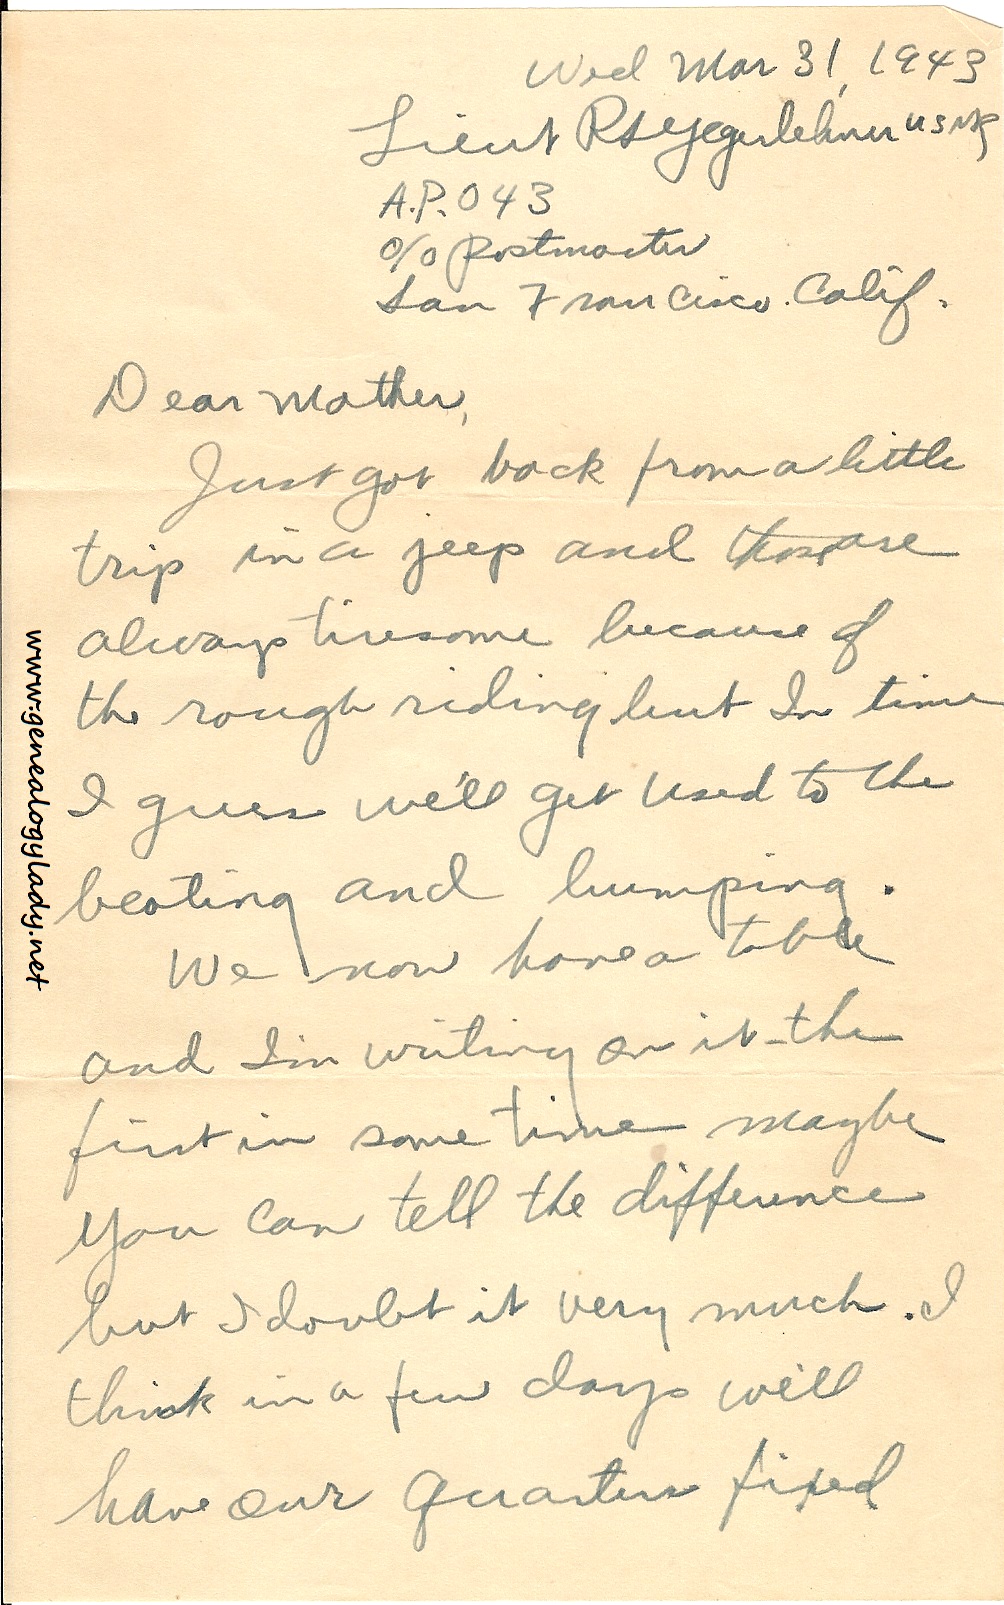 Wed Mar 31, 1943
Lieut RS Yegerlehner USNR
A.P.O 43
c/o Postmaster
San Francisco. Calif.
Dear Mother,
Just got back from a little
trip in a jeep and those are
always tiresome because of
the rough riding but In time
I guess we'll get used to the
beating and bumping.
We now have a table
and I'm writing on it - the
first in some time maybe
you can tell the difference
but I doubt it very much. I
think in a few days we'll
have our quarters fixed
www.genealogylady.net